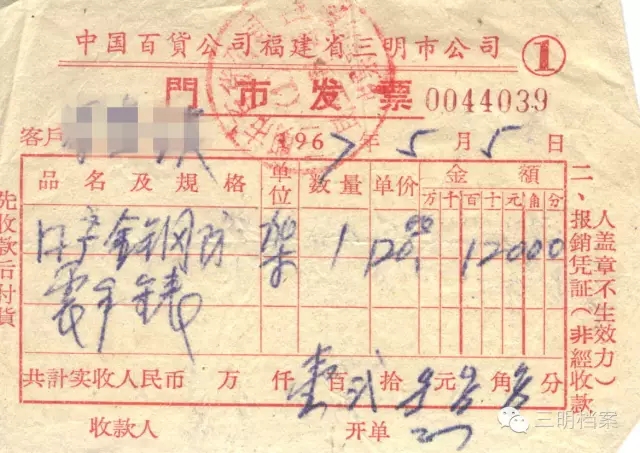 中国百貨公司福建省三明市公司
①
門市发票 0044039
客戶 1967年5月5日
品名及規格 单位 数量 单价 金額
万千百十元角分
全钢防 架 1 120.00 12000
震手錶
共計实收人民币 万 仟 壹百 弍拾 零元 零角 零分
收款人 开单
先收款后付貨
二、报銷凭証(非經收款
人盖章不生效力)
三明档案